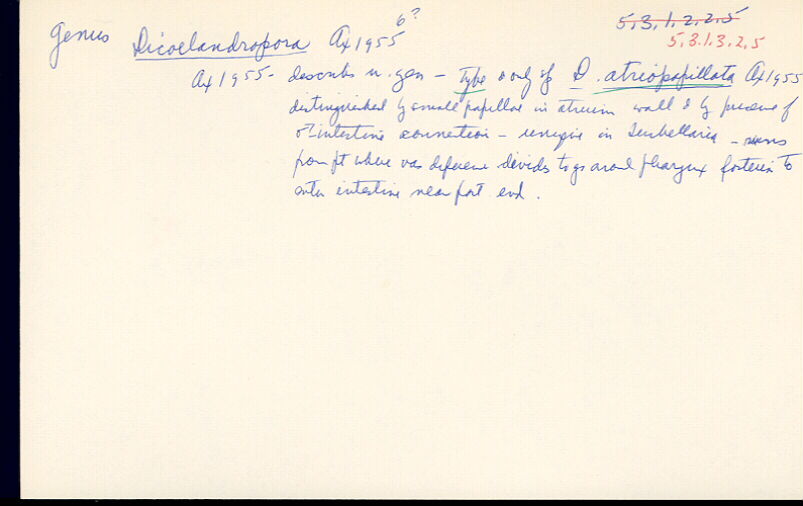 5.3.1.2.2.5
6?
Genus Dicoelandropora Ax 1955
5.3.1.3.2.5
Ax 1955 - describes n. gen - type & only sp D. atriopapillata Ax 1955
distinguished by small papillae in atrium wall & by presence of
♂ intestine connection - unique in Turbellaria - runs
from pt where vas deferens divides to go around pharynx posterior to
enter intestine near post end.